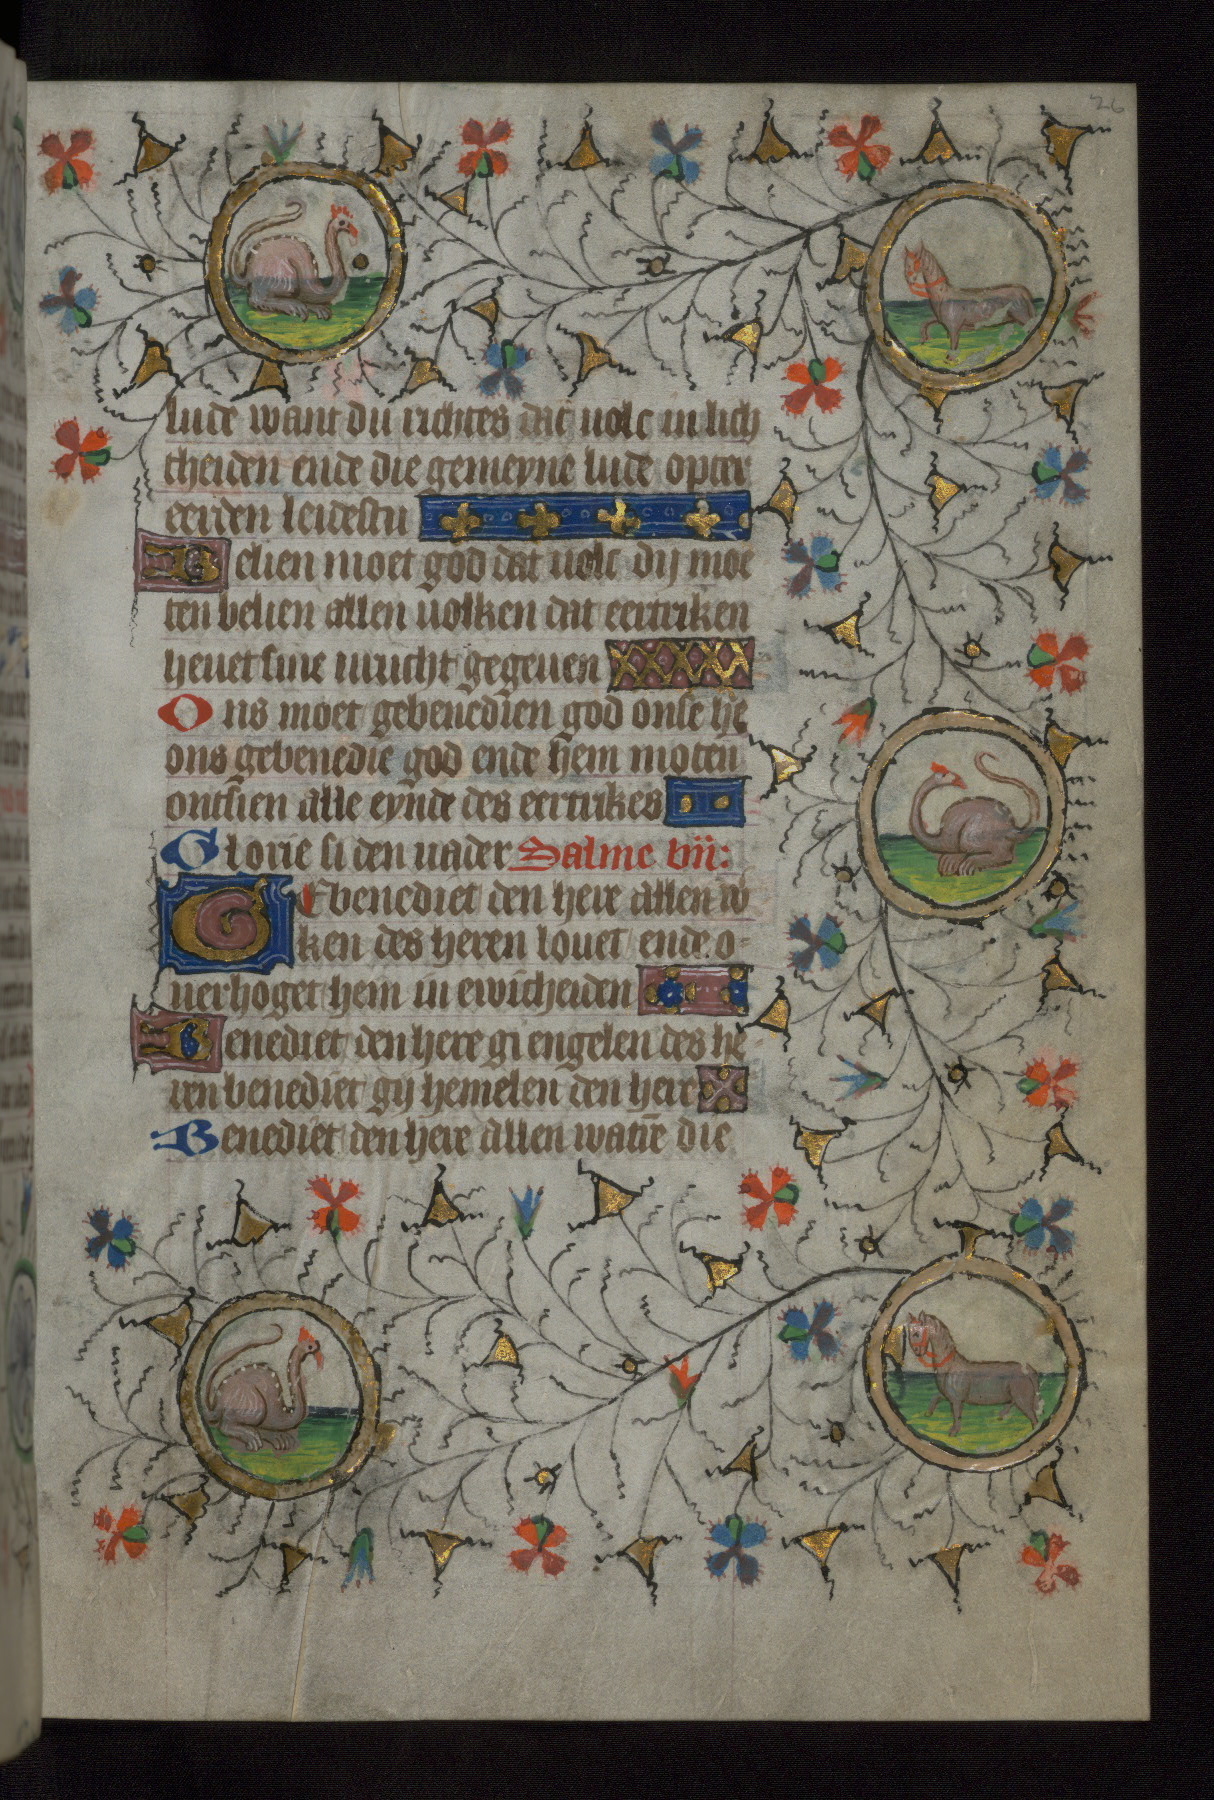 26
lude want du richtes dat uolc in lich
theiden ende die gemeyne lude opter
eerden leidestu
Belien moet god dat uolc dij moe
ten belien allen uolken dat eertriken
heuet sine urucht gegeuen
Ons moet gebenedien god onse he
ons gebenedie god ende hem moten
ontsien alle eynde des eertrikes
Glorie si den uader Salme vii:
Gebenediet den here allen w
ken des heren louet ende o-
uerhoget hem in ewicheiden
Benediet den here gi engelen des he-
ren benediet gij hemelen den here
Benediet den here allen watre die